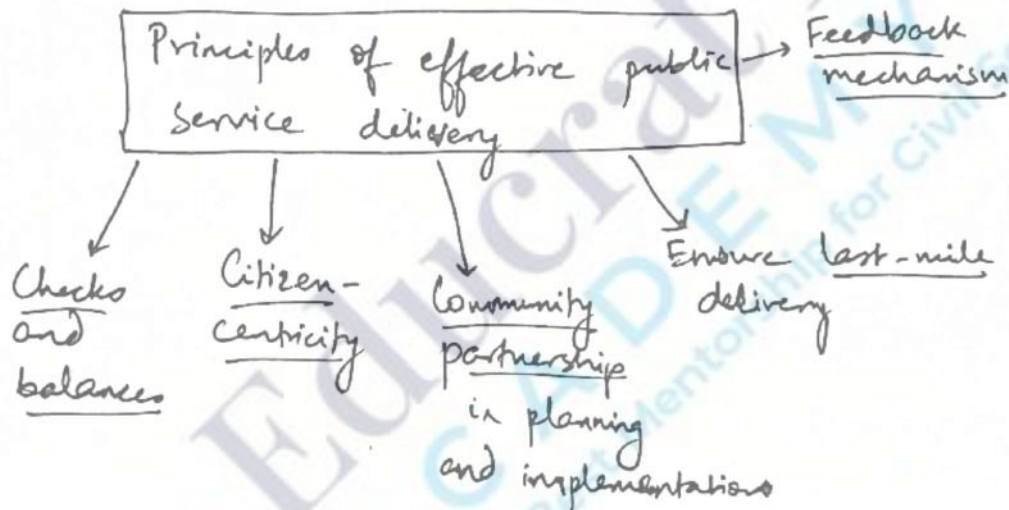 Principles of effective public
service delivery
Feedback
mechanism
Checks
and
balances
Citizen-
centricity
Community
partnership
in planning
and implementations
Ensure last-mile
delivery
Educrat
CADEMY
Mentorship for Civil Se